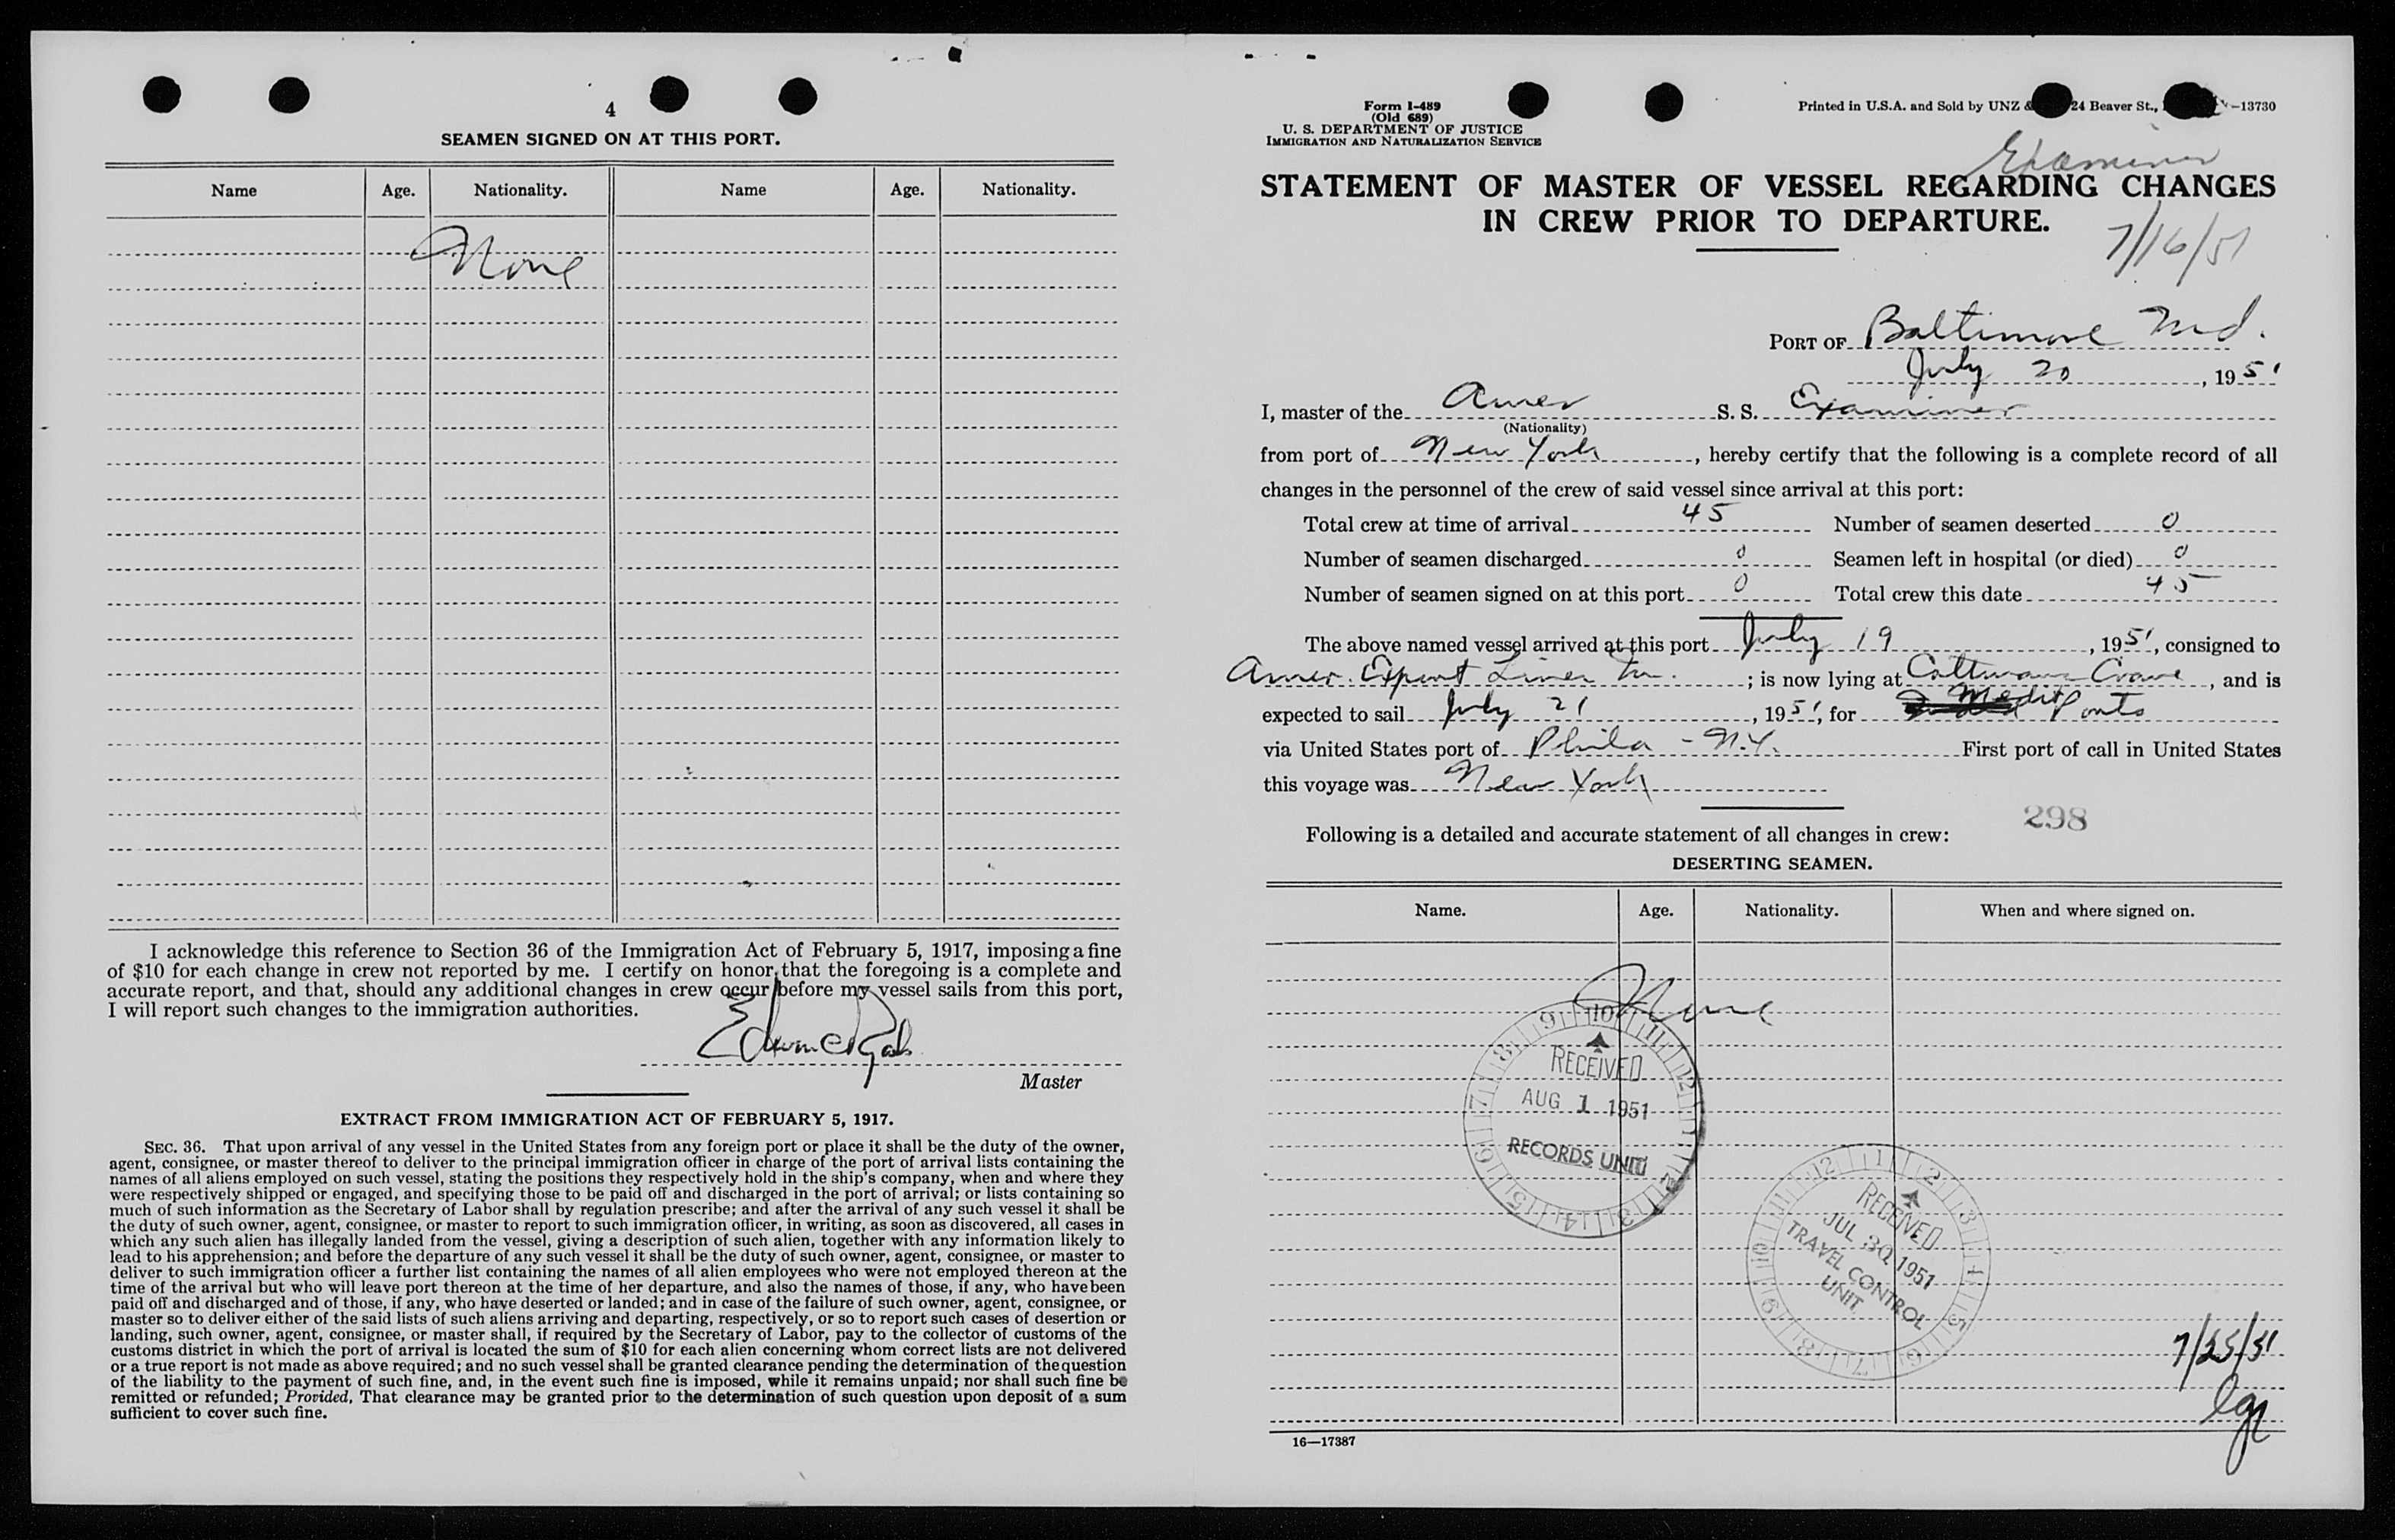 4
SEAMEN SIGNED ON AT THIS PORT.
Name Age. Nationality. Name Age. Nationality.
None
I acknowledge this reference to Section 36 of the Immigration Act of February 5, 1917, imposing a fine
of $10 for each change in crew not reported by me. I certify on honor that the foregoing is a complete and
accurate report, and that, should any additional changes in crew occur before my vessel sails from this port,
I will report such changes to the immigration authorities.
Master
EXTRACT FROM IMMIGRATION ACT OF FEBRUARY 5, 1917.
SEC. 36. That upon arrival of any vessel in the United States from any foreign port or place it shall be the duty of the owner,
agent, consignee, or master thereof to deliver to the principal immigration officer in charge of the port of arrival lists containing the
names of all aliens employed on such vessel, stating the positions they respectively hold in the ship's company, when and where they
were respectively shipped or engaged, and specifying those to be paid off and discharged in the port of arrival; or lists containing so
much of such information as the Secretary of Labor shall by regulation prescribe; and after the arrival of any such vessel it shall be
the duty of such owner, agent, consignee, or master to report to such immigration officer, in writing, as soon as discovered, all cases in
which any such alien has illegally landed from the vessel, giving a description of such alien, together with any information likely to
lead to his apprehension; and before the departure of any such vessel it shall be the duty of such owner, agent, consignee, or master to
deliver to such immigration officer a further list containing the names of all alien employees who were not employed thereon at the
time of the arrival but who will leave port thereon at the time of her departure, and also the names of those, if any, who have been
paid off and discharged and of those, if any, who have deserted or landed; and in case of the failure of such owner, agent, consignee, or
master so to deliver either of the said lists of such aliens arriving and departing, respectively, or so to report such cases of desertion or
landing, such owner, agent, consignee, or master shall, if required by the Secretary of Labor, pay to the collector of customs of the
customs district in which the port of arrival is located the sum of $10 for each alien concerning whom correct lists are not delivered
or a true report is not made as above required; and no such vessel shall be granted clearance pending the determination of the question
of the liability to the payment of such fine, and, in the event such fine is imposed, while it remains unpaid; nor shall such fine be
remitted or refunded; Provided, That clearance may be granted prior to the determination of such question upon deposit of a sum
sufficient to cover such fine.
Form I-489
(Old 689)
U. S. DEPARTMENT OF JUSTICE
IMMIGRATION AND NATURALIZATION SERVICE
Printed in U.S.A. and Sold by UNZ & 24 Beaver St., -13730
Examiner
STATEMENT OF MASTER OF VESSEL REGARDING CHANGES
IN CREW PRIOR TO DEPARTURE.
7/16/51
PORT OF Baltimore Md.
July 20, 1951
I, master of the Amer S. S. Examiner
(Nationality)
from port of New York, hereby certify that the following is a complete record of all
changes in the personnel of the crew of said vessel since arrival at this port:
Total crew at time of arrival 45 Number of seamen deserted 0
Number of seamen discharged 0 Seamen left in hospital (or died) 0
Number of seamen signed on at this port 0 Total crew this date 45
The above named vessel arrived at this port July 19, 1951, consigned to
Amer. Export Lines Inc.; is now lying at , and is
expected to sail July 21, 1951, for Medit Ports
via United States port of Phila - N.Y. First port of call in United States
this voyage was New York
298
Following is a detailed and accurate statement of all changes in crew:
DESERTING SEAMEN.
Name. Age. Nationality. When and where signed on.
None
9 10 11 12 1 2 3 4 5 6 7 8
RECEIVED
AUG 1 1951
RECORDS UNIT
12 1 2 3 4 5 6 7 8 9 10 11
RECEIVED
JUL 30 1951
TRAVEL CONTROL
UNIT
7/25/51
16—17387